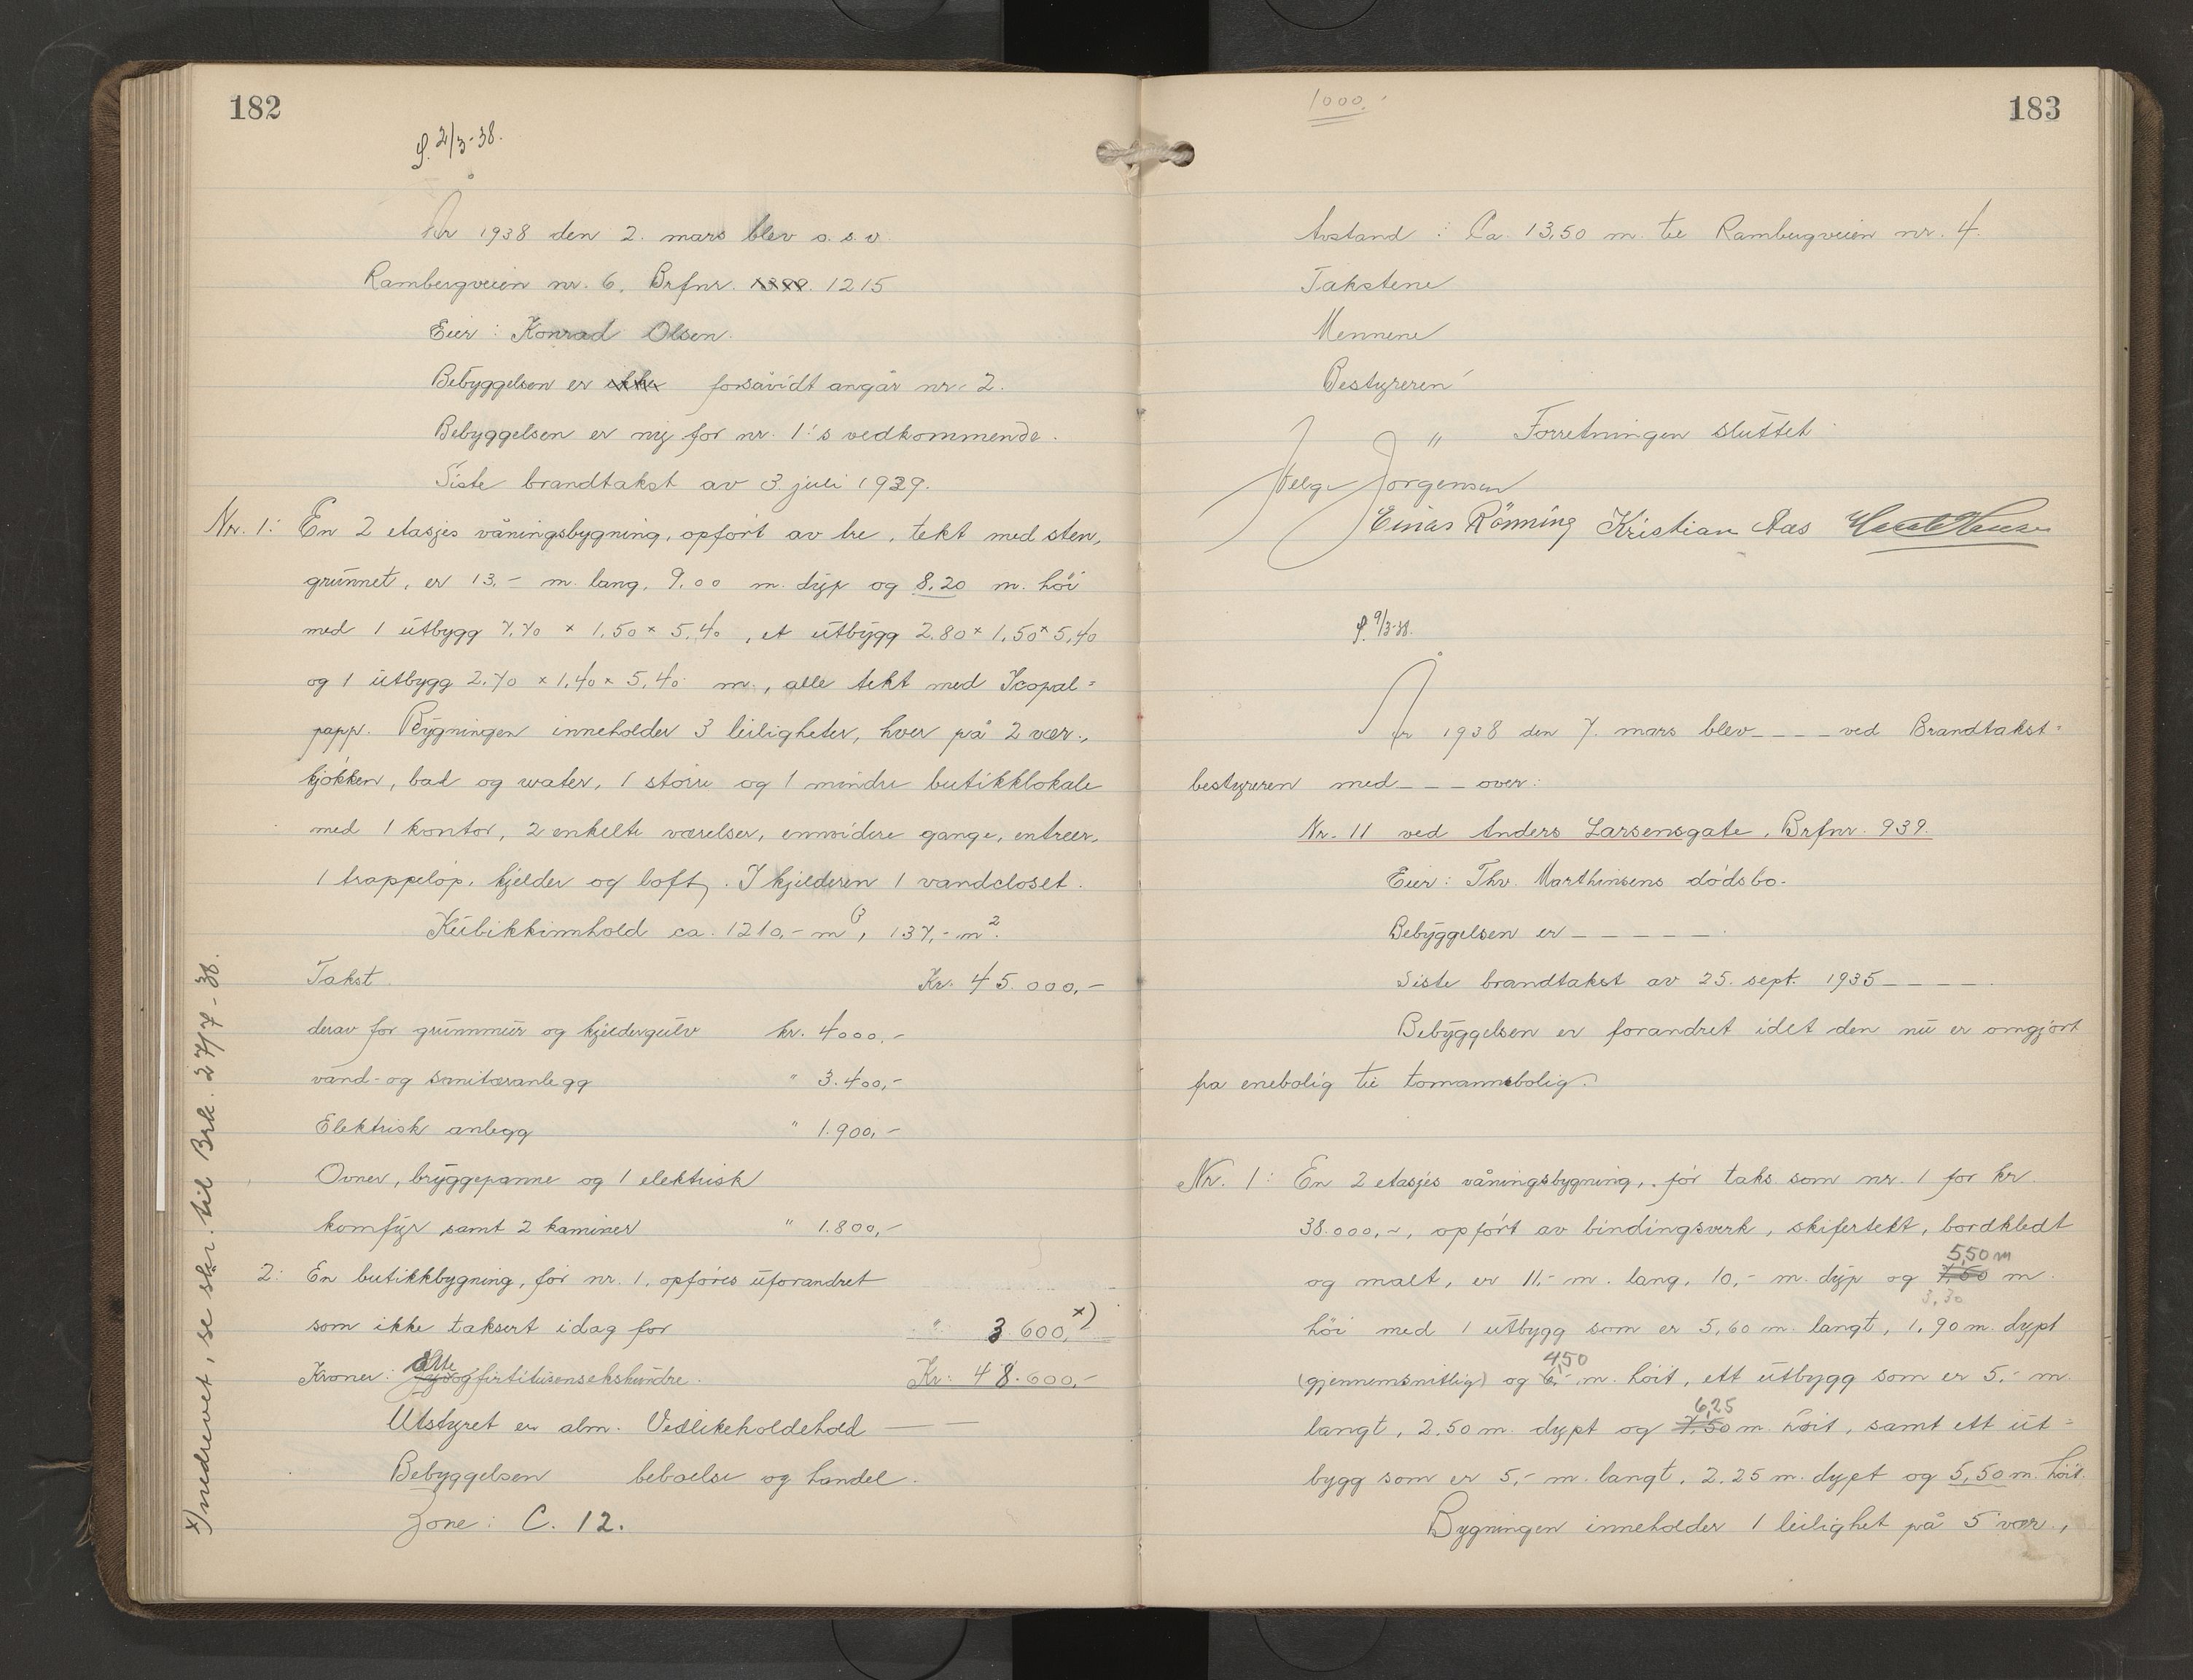 182
f. 2/3-38.
År 1938 den 2. mars blev o.s.v.
Rambergveien nr. 6. Brfnr. 1215
Eier: Konrad Olsen.
Bebyggelsen er ikke forsåvidt angår nr. 2.
Bebyggelsen er ny for nr. 1's vedkommende.
Siste brandtakst av 3. juli 1929.
Nr. 1: En 2 etasjes våningsbygning, opført av tre, tekt med sten,
grunnet, er 13,- m. lang, 9.00 m. dyp og 8.20 m. höi
med 1 utbygg 7.70 x 1,50 x 5,40, et utbygg 2.80 x 1.50 x 5,40
og 1 utbygg 2.70 x 1,40 x 5,40 m., alle tekt med Icopal=
papp. Bygningen inneholder 3 leiligheter, hver på 2 vær.,
kjökken, bad og water, 1 större og 1 mindre butikklokale
med 1 kontor, 2 enkelte værelser, ennvidere gange, entreer,
1 trappelöp, kjelder og loft. I kjelderen 1 vandcloset.
Kubikkinnhold ca. 1210,- m3, 137,- m2.
Takst Kr. 45.000,-
derav for grunnmur og kjeldergulv kr. 4000,-
vand- og sanitæranlegg " 3.400,-
Elektrisk anlegg " 1.900,-
Ovner, bryggepanne og 1 elektrisk
komfyr samt 2 kaminer " 1.800,-
2: En butikkbygning, för nr. 1, opføres uforandret
som ikke taksert idag for " 3.600,- x)
Kroner: Otte og firtitusensekshundre. Kr. 48.600,-
Utstyret er alm. Vedlikeholdehold — —
Bebyggelsen beboelse og handel.
Zone: C. 12.
x) nedrevet, se skr. til Brk. 27/7-38.
1000.
183
Avstand: Ca. 13,50 m. til Rambergveien nr. 4.
Takstene
Mennene
Bestyreren
" Forretningen sluttet
Helge Jørgensen
Einar Rönning Kristian Aas
f. 9/3-38.
År 1938 den 7. mars blev _ _ _ _ ved Brandtakst=
bestyreren med _ _ _ over:
Nr. 11 ved Anders Larsensgate, Brfnr. 939.
Eier: Thv. Marthinsens dödsbo.
Bebyggelsen er _ _ _ _ _
Siste brandtakst av 25. sept. 1935 _ _ _ _.
Bebyggelsen er forandret idet den nu er omgjort
fra enebolig til tomannsbolig.
Nr. 1: En 2 etasjes våningsbygning, för taks. som nr. 1 for kr.
38.000,-, opfört av bindingsverk, skifertekt, bordkledt
5,50 m
og malt, er 11,- m. lang, 10,- m. dyp og 7,50 m.
3,30
höi med 1 utbygg som er 5,60 m. langt, 1,90 m. dypt
4,50
(gjennemsnitlig) og 6,- m. höit, ett utbygg som er 5,- m.
6,25
langt, 2.50 m. dypt og 7,50 m. höit, samt ett ut=
bygg som er 5,- m. langt, 2.25 m. dypt og 5,50 m. höit.
Bygningen inneholder 1 leilighet på 5 vær.,